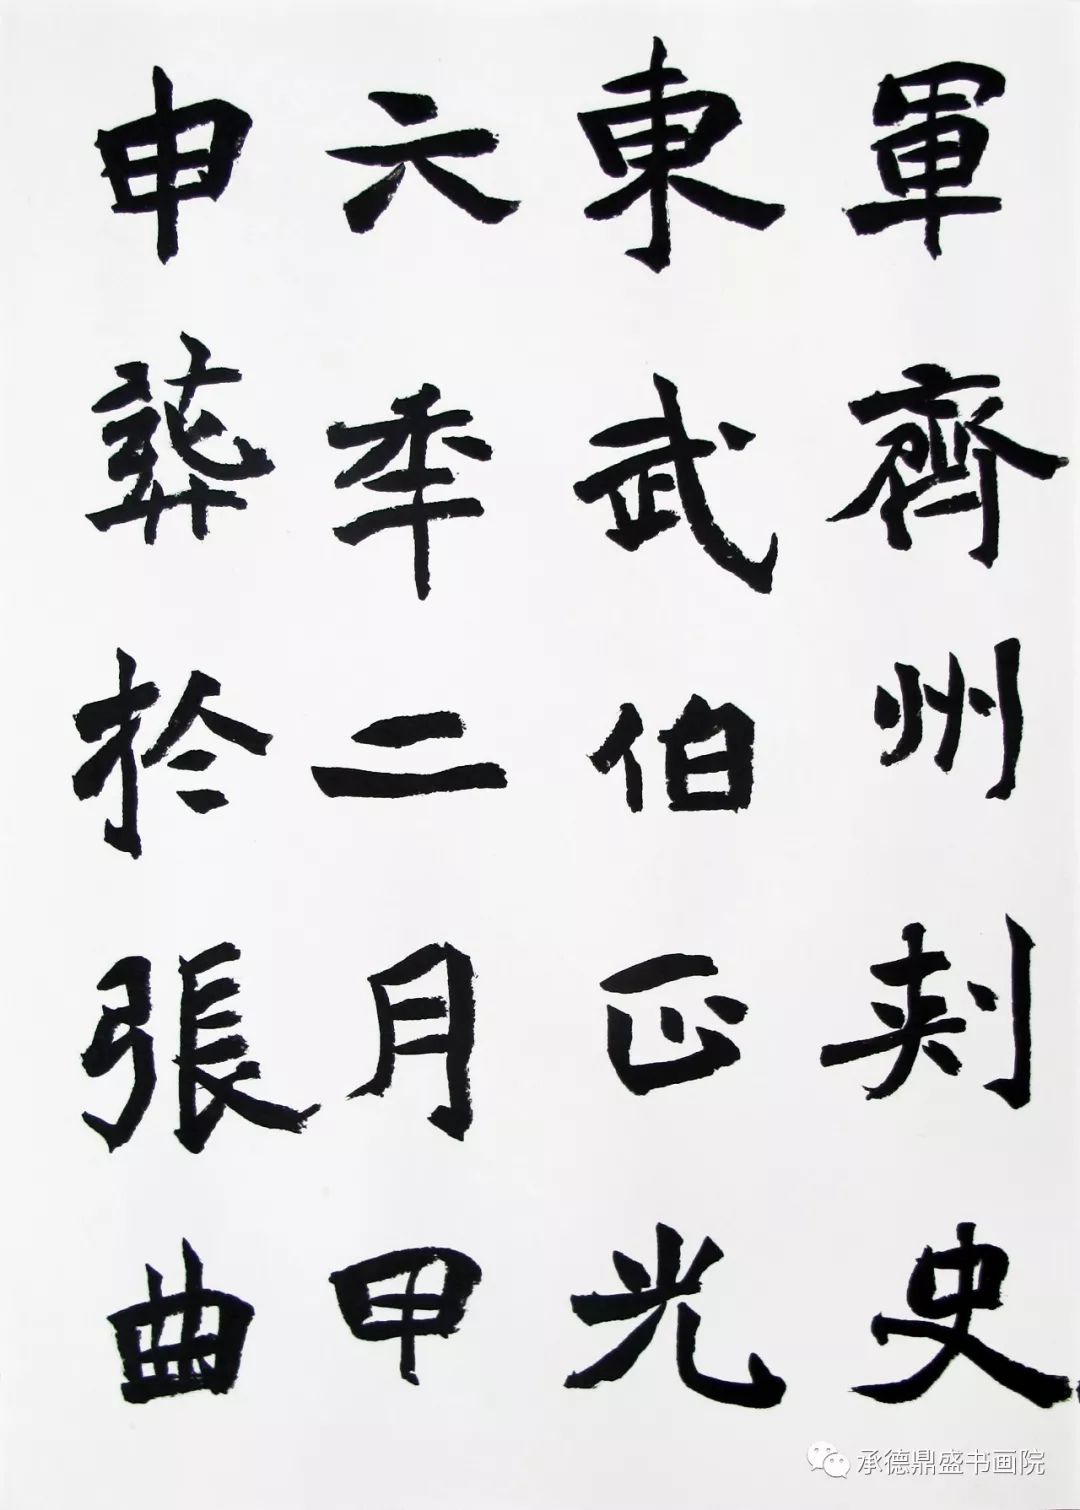 軍齊州刾史
東武伯正光
六秊二月甲
申葬於張曲
承德鼎盛书画院